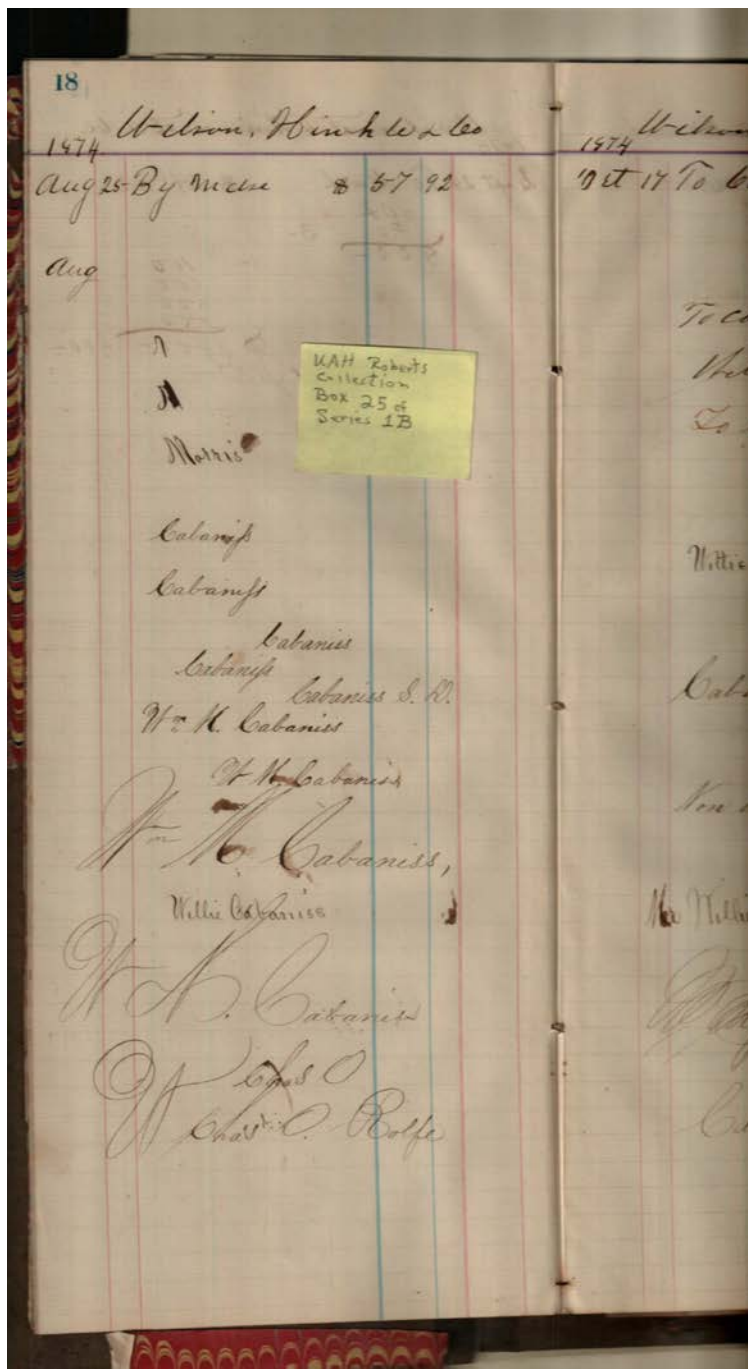 18
Wilson, Hinkle & Co
1874
Aug 25 By Mdse $ 57 92
Aug
M
Morris
UAH Roberts
Collection
Box 25 of
Series 1B
Cabaniss
Cabaniss
Cabaniss
Cabaniss
Cabaniss S. D.
Wm H. Cabaniss
W H. Cabaniss
Wm H. Cabaniss,
Willie Cabaniss
W H. Cabaniss
Chas O
W Chas. O. Rolfe
Wilson
1874
Oct 17 To
To
To
Willie
Cab
Mr Willi